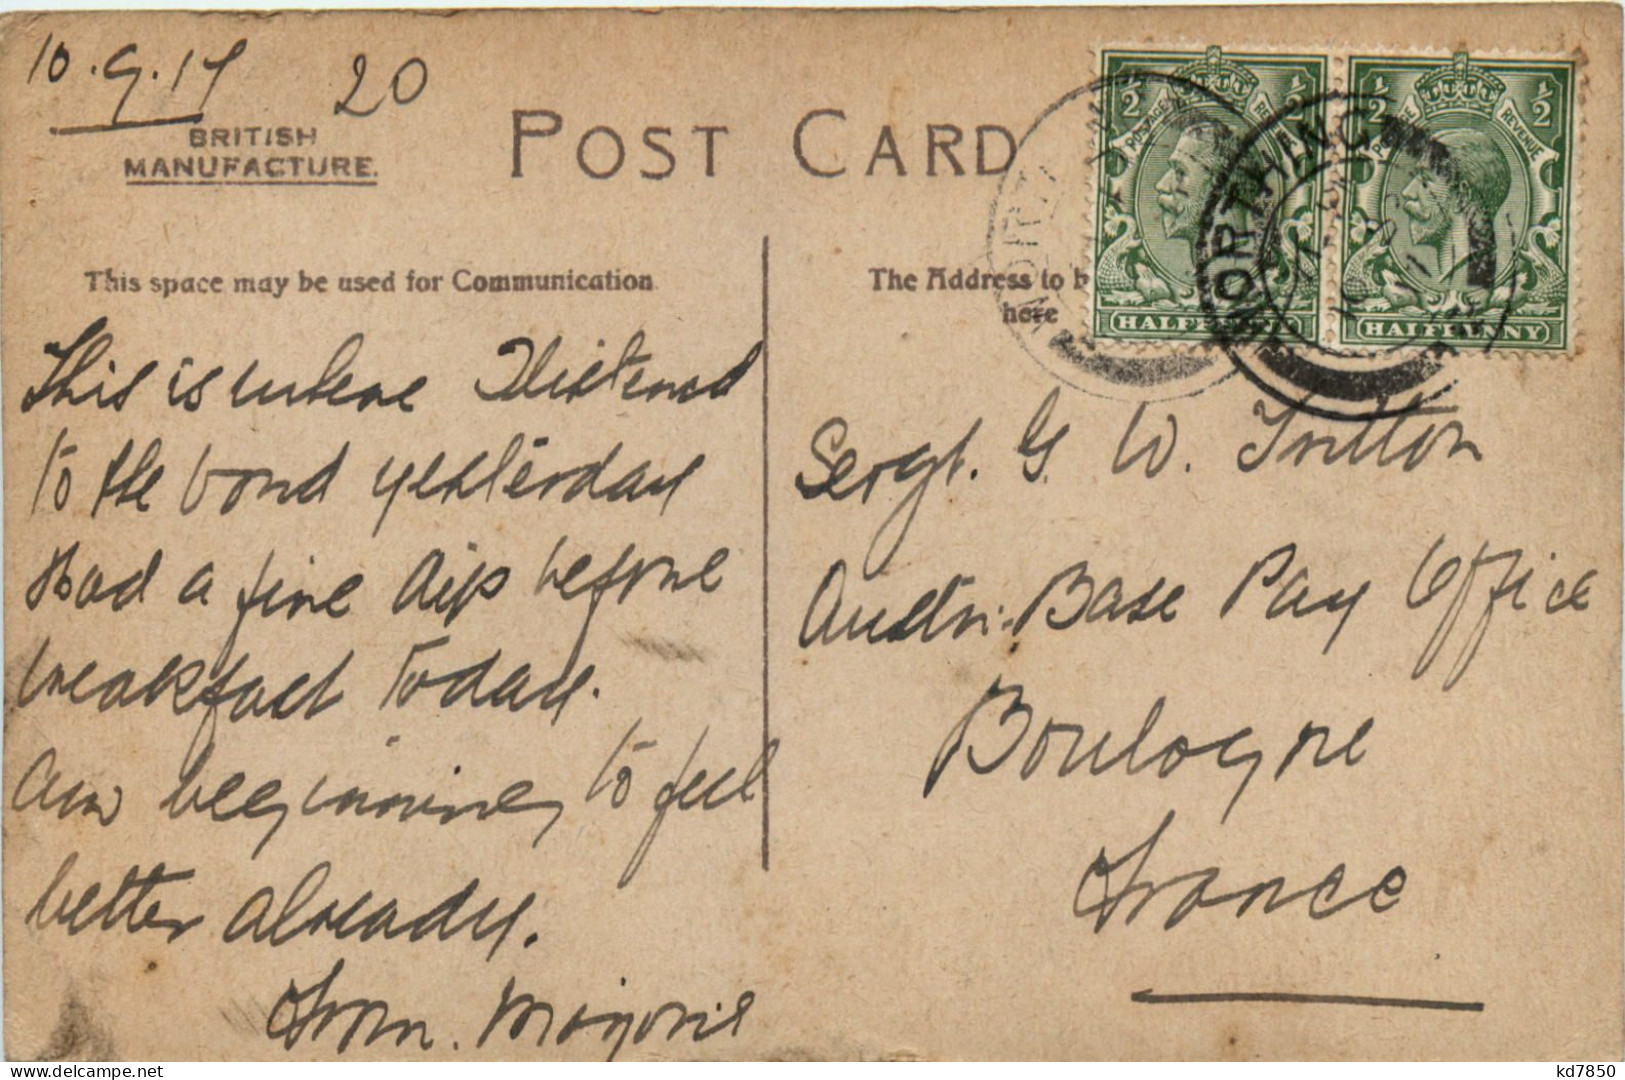 10.9.17 20
BRITISH
MANUFACTURE.
POST CARD
This space may be used for Communication
The Address to b
here
½ POSTAGE REVENUE ½
HALFPENNY
½ REVENUE ½
HALFPENNY
WORTHING
This is where I listened
to the band yesterday
Had a fine dip before
breakfast today.
am beginning to feel
better already.
From. Marjorie
Sergt. G. W. Tritton
Austn: Base Pay Office
Boulogne
France
kd7850